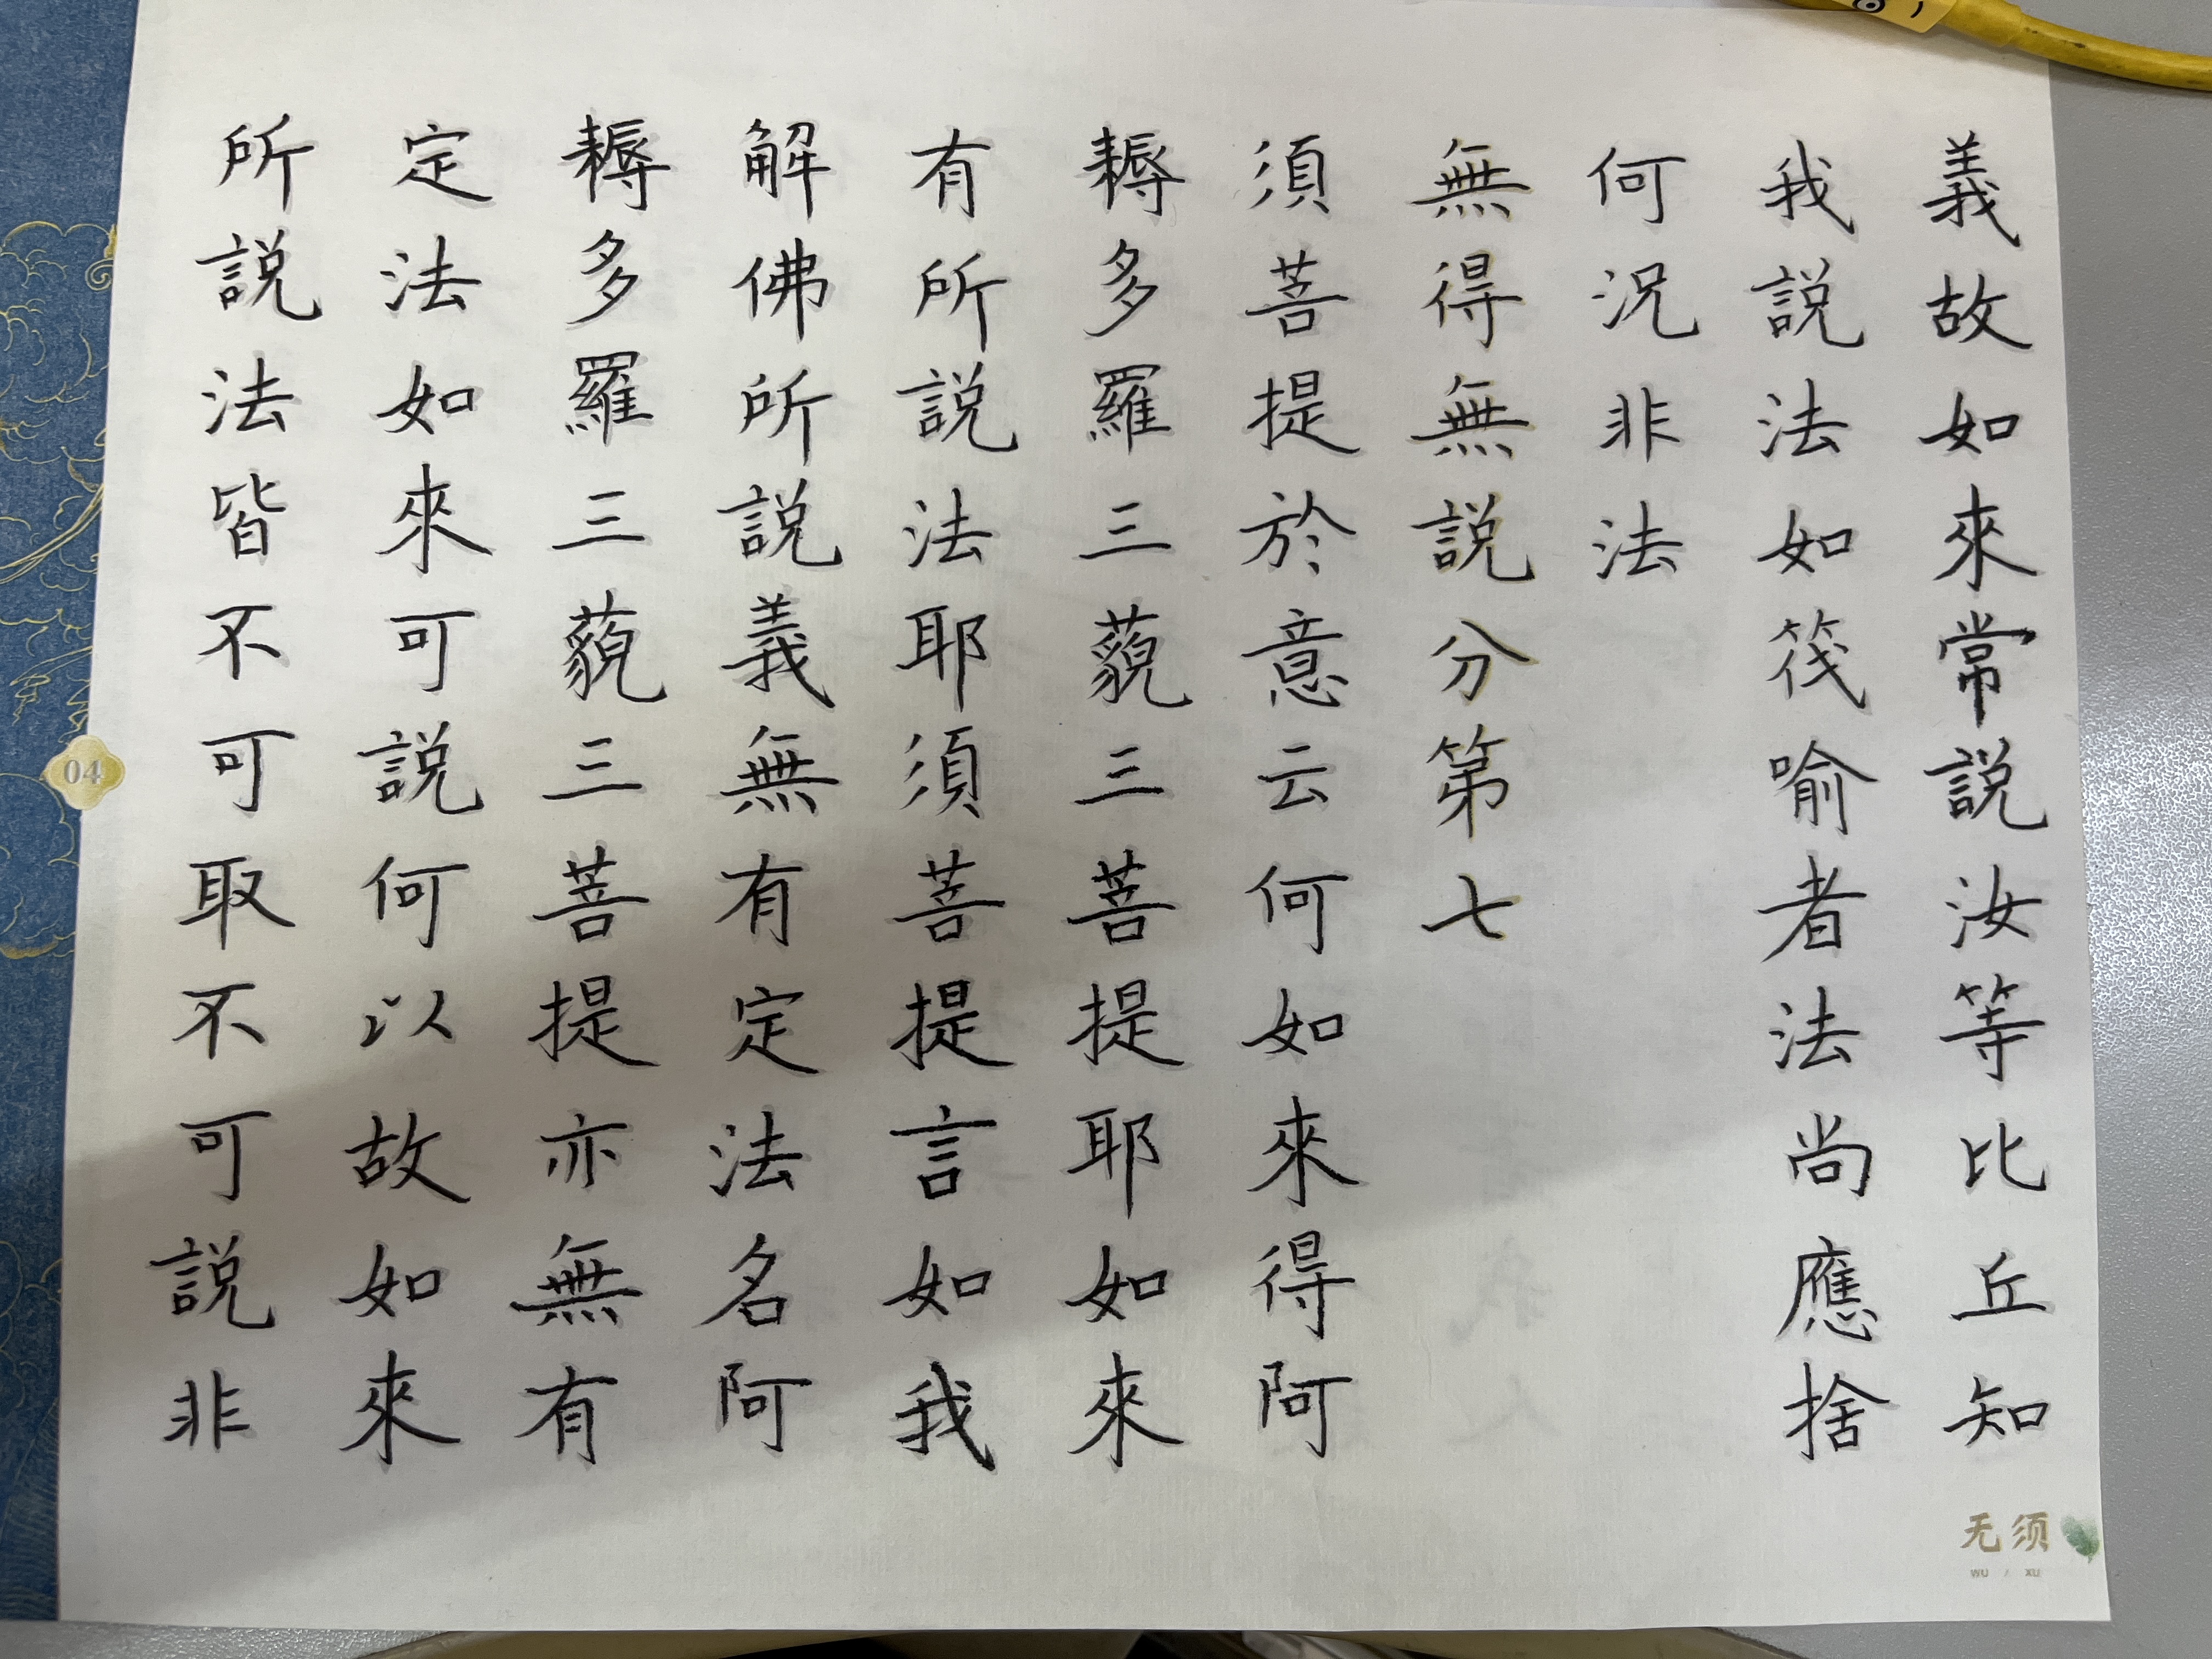 04
義故如來常說汝等比丘知
我說法如筏喻者法尚應捨
何況非法
無得無說分第七
須菩提於意云何如來得阿
耨多羅三藐三菩提耶如來
有所說法耶須菩提言如我
解佛所說義無有定法名阿
耨多羅三藐三菩提亦無有
定法如來可說何以故如來
所說法皆不可取不可說非
无须
WU / XU